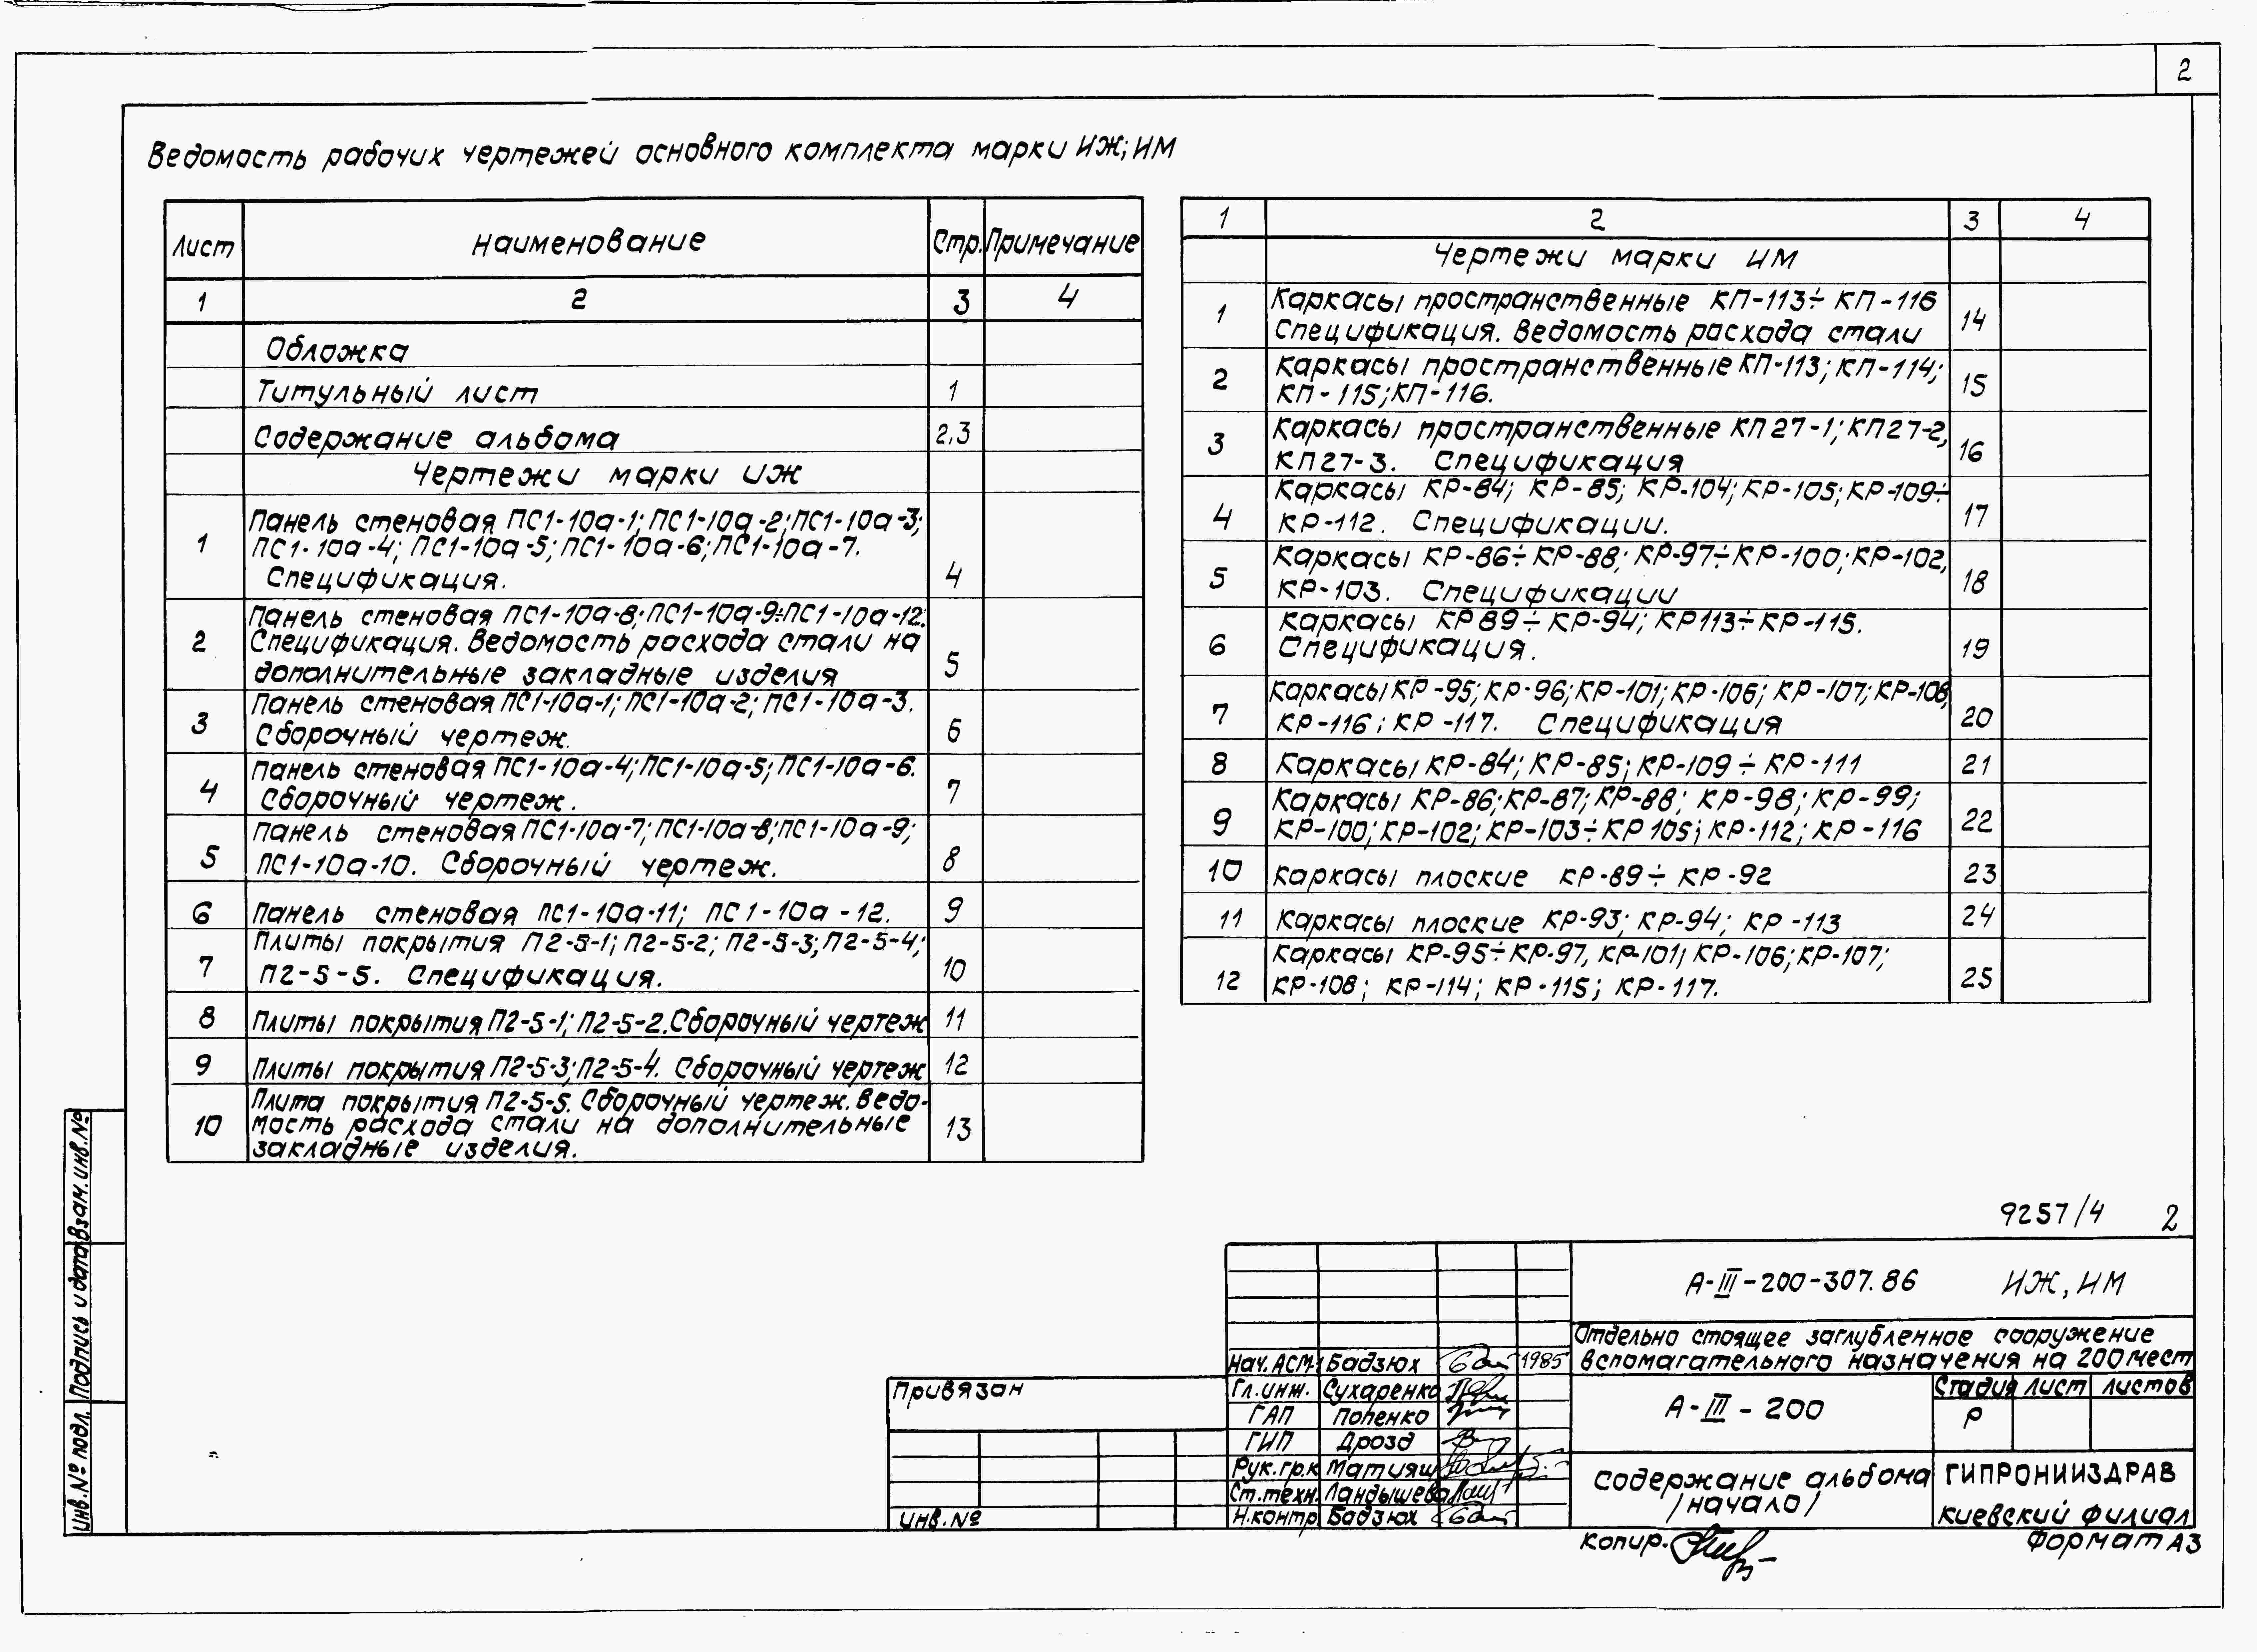 2
Ведомость рабочих чертежей основного комплекта марки ИЖ; ИМ
Лист Наименование Стр. Примечание
1 2 3 4
Обложка
Титульный лист 1
Содержание альбома 2,3
Чертежи марки ИЖ
Панель стеновая ПС1-10а-1; ПС1-10а-2; ПС1-10а-3;
1 ПС1-10а-4; ПС1-10а-5; ПС1-10а-6; ПС1-10а-7.
Спецификация. 4
Панель стеновая ПС1-10а-8; ПС1-10а-9÷ПС1-10а-12.
2 Спецификация. Ведомость расхода стали на
дополнительные закладные изделия 5
Панель стеновая ПС1-10а-1; ПС1-10а-2; ПС1-10а-3.
3 Сборочный чертеж. 6
Панель стеновая ПС1-10а-4; ПС1-10а-5; ПС1-10а-6.
4 Сборочный чертеж. 7
Панель стеновая ПС1-10а-7; ПС1-10а-8; ПС1-10а-9;
5 ПС1-10а-10. Сборочный чертеж. 8
6 Панель стеновая ПС1-10а-11; ПС1-10а-12. 9
Плиты покрытия П2-5-1; П2-5-2; П2-5-3; П2-5-4;
7 П2-5-5. Спецификация. 10
8 Плиты покрытия П2-5-1; П2-5-2. Сборочный чертеж 11
9 Плиты покрытия П2-5-3; П2-5-4. Сборочный чертеж 12
Плита покрытия П2-5-5. Сборочный чертеж. Ведо-
10 мость расхода стали на дополнительные 13
закладные изделия.
1 2 3 4
Чертежи марки ИМ
Каркасы пространственные КП-113÷КП-116
1 Спецификация. Ведомость расхода стали 14
Каркасы пространственные КП-113; КП-114;
2 КП-115; КП-116. 15
Каркасы пространственные КП27-1; КП27-2,
3 КП27-3. Спецификация 16
Каркасы КР-84; КР-85; КР-104; КР-105; КР-109÷
4 КР-112. Спецификации. 17
Каркасы КР-86÷КР-88; КР-97÷КР-100; КР-102,
5 КР-103. Спецификации 18
Каркасы КР89÷КР-94; КР113÷КР-115.
6 Спецификация. 19
Каркасы КР-95; КР-96; КР-101; КР-106; КР-107; КР-108,
7 КР-116; КР-117. Спецификация 20
8 Каркасы КР-84; КР-85; КР-109÷КР-111 21
Каркасы КР-86; КР-87; КР-88; КР-98; КР-99;
9 КР-100; КР-102; КР-103÷КР105; КР-112; КР-116 22
10 Каркасы плоские КР-89÷КР-92 23
11 Каркасы плоские КР-93; КР-94; КР-113 24
Каркасы КР-95÷КР-97, КР-101; КР-106; КР-107;
12 КР-108; КР-114; КР-115; КР-117. 25
9257/4 2
А-III-200-307.86 ИЖ, ИМ
Отдельно стоящее заглубленное сооружение
вспомагательного назначения на 200 мест
Нач. АСМ-1 Бадзюх 1985
Гл. инж. Сухаренко
ГАП Попенко
ГИП Дрозд
Рук. гр. к Матияш
Ст. техн. Ландышева
Н. контр Бадзюх
А-III-200
Стадия Лист Листов
Р
Содержание альбома
/начало/
ГИПРОНИИЗДРАВ
Киевский филиал
Привязан
Инв. №
Копир.
Формат А3
Инв. № подл. Подпись и дата Взам. инв. №